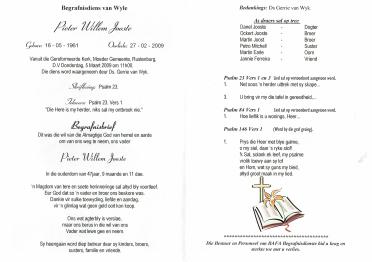 Begrafnisdiens van Wyle
Pieter Willem Jooste
Gebore: 16 - 05 - 1961 Oorlede: 27 - 02 - 2009
Vanuit die Gereformeerde Kerk, Moeder Gemeente, Rustenburg,
D.V Donderdag, 5 Maart 2009 om 11h00.
Die diens word waargeneem deur Ds. Gerrie van Wyk.
Skriflesing: Psalm 23.
Teksvers: Psalm 23. Vers 1
"Die Here is my herder, niks sal my ontbreek nie."
Begrafnisbrief
Dit was die wil van die Almagtige God van hemel en aarde
om van ons weg te neem, ons vader
Pieter Willem Jooste
In die ouderdom van 47jaar, 9 maande en 11 dae.
'n Magdom van tere en soete herinnerings sal altyd by voortleef.
Eer God dat so 'n vader en broer ons beskore was.
Dankie vir sulke toewyding, liefde en aandag,
vir 'n glimlag wat geen oomblik kon doof.
Ons wat agterbly is verslae,
maar ons berus in die wil van ons
Vader wat lewe gee en neem.
Sy heengaan word diep betreur deur sy kinders, broers,
susters, familie en vriende.
Bedankings: Ds Gerrie van Wyk.
As draers sal op tree
Daniel Jooste - Draer
Ockert Jooste - Broer
Martin Joost - Broer
Petro Mitchell - Suster
Martin Earle - Oom
Jannie Ferreira - Vriend
Psalm 23 Vers 1 en 3
1. Net soos 'n herder uittrek met sy skape...
3. U bring vir my die tafel in gereedheid...
Psalm 84 Vers 1
1. Hoe lieflik is u wonings, Heer...
Psalm 146 Vers 1 (Word by die graf gesing).
1. Prys die Heer met blye galme,
o my siel, daar 's ryke stof!
'k Sal, solank ek leef, my psalme
vrolik toewy aan sy lof
en Hom, wat sy guns my bied,
altyd groot maak in my lied.
Die Bestuur en Personeel van BAFA Begrafnisdienste bid u krag en
sterkte toe met u verlies.